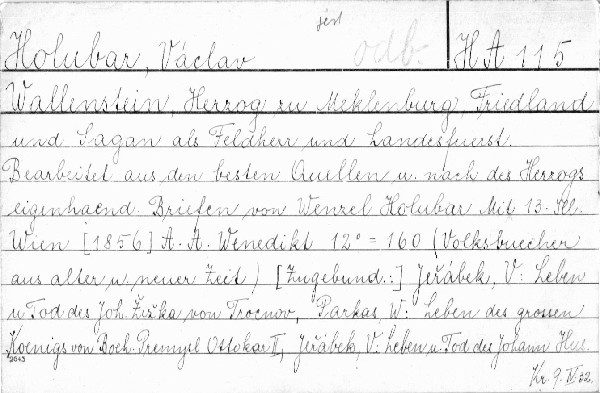 jért
Holubar, Václav odb. HA 115
Wallenstein, Herzog zu Meklenburg, Friedland
und Sagan als Feldherr und Landesfuerst.
Bearbeitet aus den besten Quellen u. nach des Herzogs
eigenhaend. Briefen von Wenzel Holubar Mit 13. Ill.
Wien [1856] A. A. Wenedikt 12° = 160 (Volksbuecher
aus alter u. neuer Zeit) [Zugebund.:] Jeřábek, V: Leben
u Tod des Joh. Žižka von Trocnov, Parkas, W: Leben des grossen
Koenigs von Boeh. Přemysl Ottokar II, Jeřábek, V: Leben u. Tod des Johann Hus.
2643
Kr. 9. IV 32.